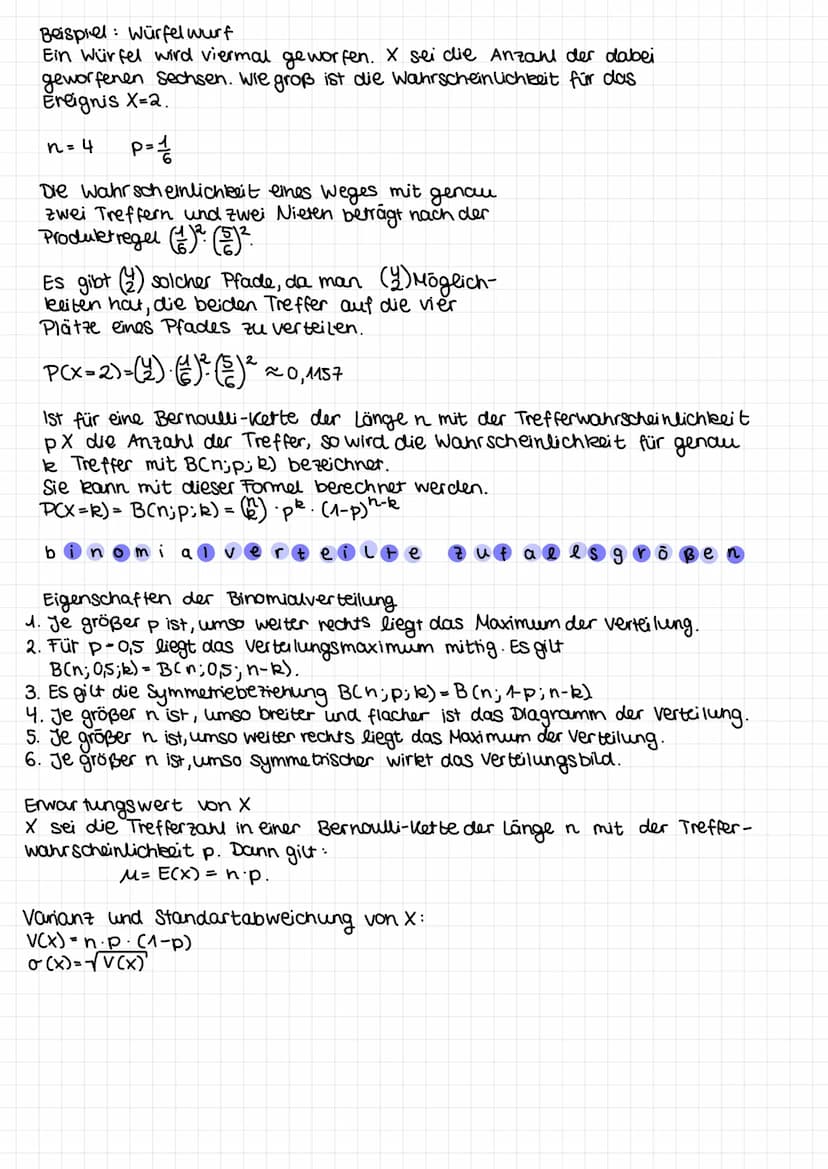 Beispiel: Würfelwurf
Ein Würfel wird viermal geworfen. X sei die Anzahl der dabei
geworfenen Sechsen. Wie groß ist die Wahrscheinlichkeit für das
Ereignis X=2.
n = 4 p = 1/6
Die Wahrscheinlichkeit eines Weges mit genau
zwei Treffern und zwei Nieten beträgt nach der
Produktregel (1/6)² · (5/6)².
Es gibt (4 2) solcher Pfade, da man (4 2) Möglich-
keiten hat, die beiden Treffer auf die vier
Plätze eines Pfades zu verteilen.
P(X=2) = (4 2) · (1/6)² · (5/6)² ≈ 0,1157
Ist für eine Bernoulli-Kette der Länge n mit der Trefferwahrscheinlichkeit
p X die Anzahl der Treffer, so wird die Wahrscheinlichkeit für genau
k Treffer mit B(n;p;k) bezeichnet.
Sie kann mit dieser Formel berechnet werden.
P(X=k) = B(n;p;k) = (n k) · p^k · (1-p)^n-k
binomialverteilte zufallsgrößen
Eigenschaften der Binomialverteilung
1. Je größer p ist, umso weiter rechts liegt das Maximum der Verteilung.
2. Für p=0,5 liegt das Verteilungsmaximum mittig. Es gilt
B(n; 0,5; k) = B(n; 0,5; n-k).
3. Es gilt die Symmetriebeziehung B(n; p; k) = B(n; 1-p; n-k)
4. Je größer n ist, umso breiter und flacher ist das Diagramm der Verteilung.
5. Je größer n ist, umso weiter rechts liegt das Maximum der Verteilung.
6. Je größer n ist, umso symmetrischer wirkt das Verteilungsbild.
Erwartungswert von X
X sei die Trefferzahl in einer Bernoulli-Kette der Länge n mit der Treffer-
wahrscheinlichkeit p. Dann gilt:
μ = E(X) = n·p.
Varianz und Standartabweichung von X:
V(X) = n·p·(1-p)
σ(X) = √V(X)